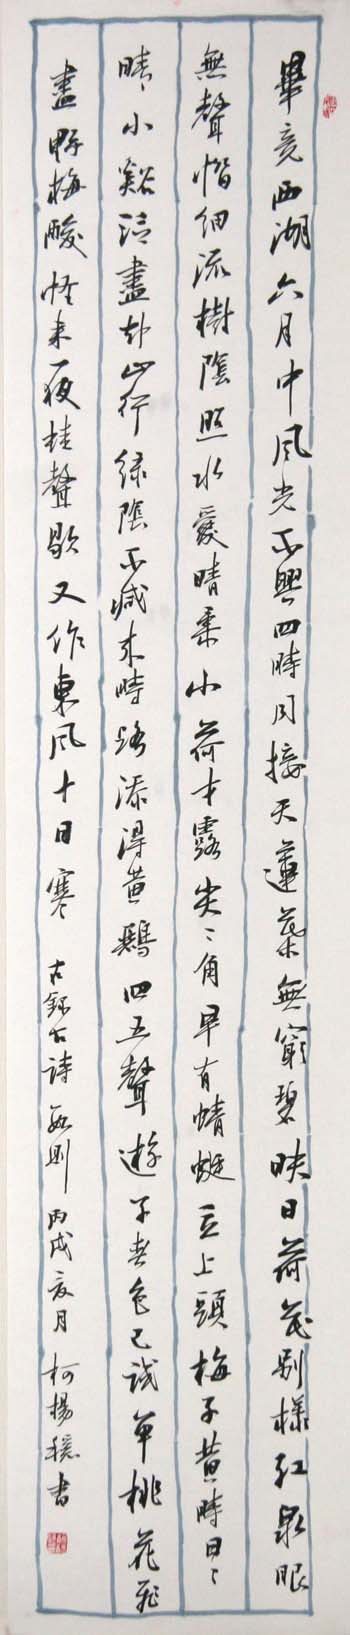 畢竟西湖六月中風光不與四時同接天蓮葉無窮碧映日荷花別樣紅泉眼
無聲惜細流樹陰照水愛晴柔小荷才露尖〻角早有蜻蜓立上頭梅子黃時日〻
晴小谿泛盡却山行綠陰不減來時路添得黃鸝四五聲遊子春色已 單桃花飛
盡野梅酸怪來一夜蛙聲歇又作東風十日寒 古錄古詩數則 丙戌夏月 柯楊 書